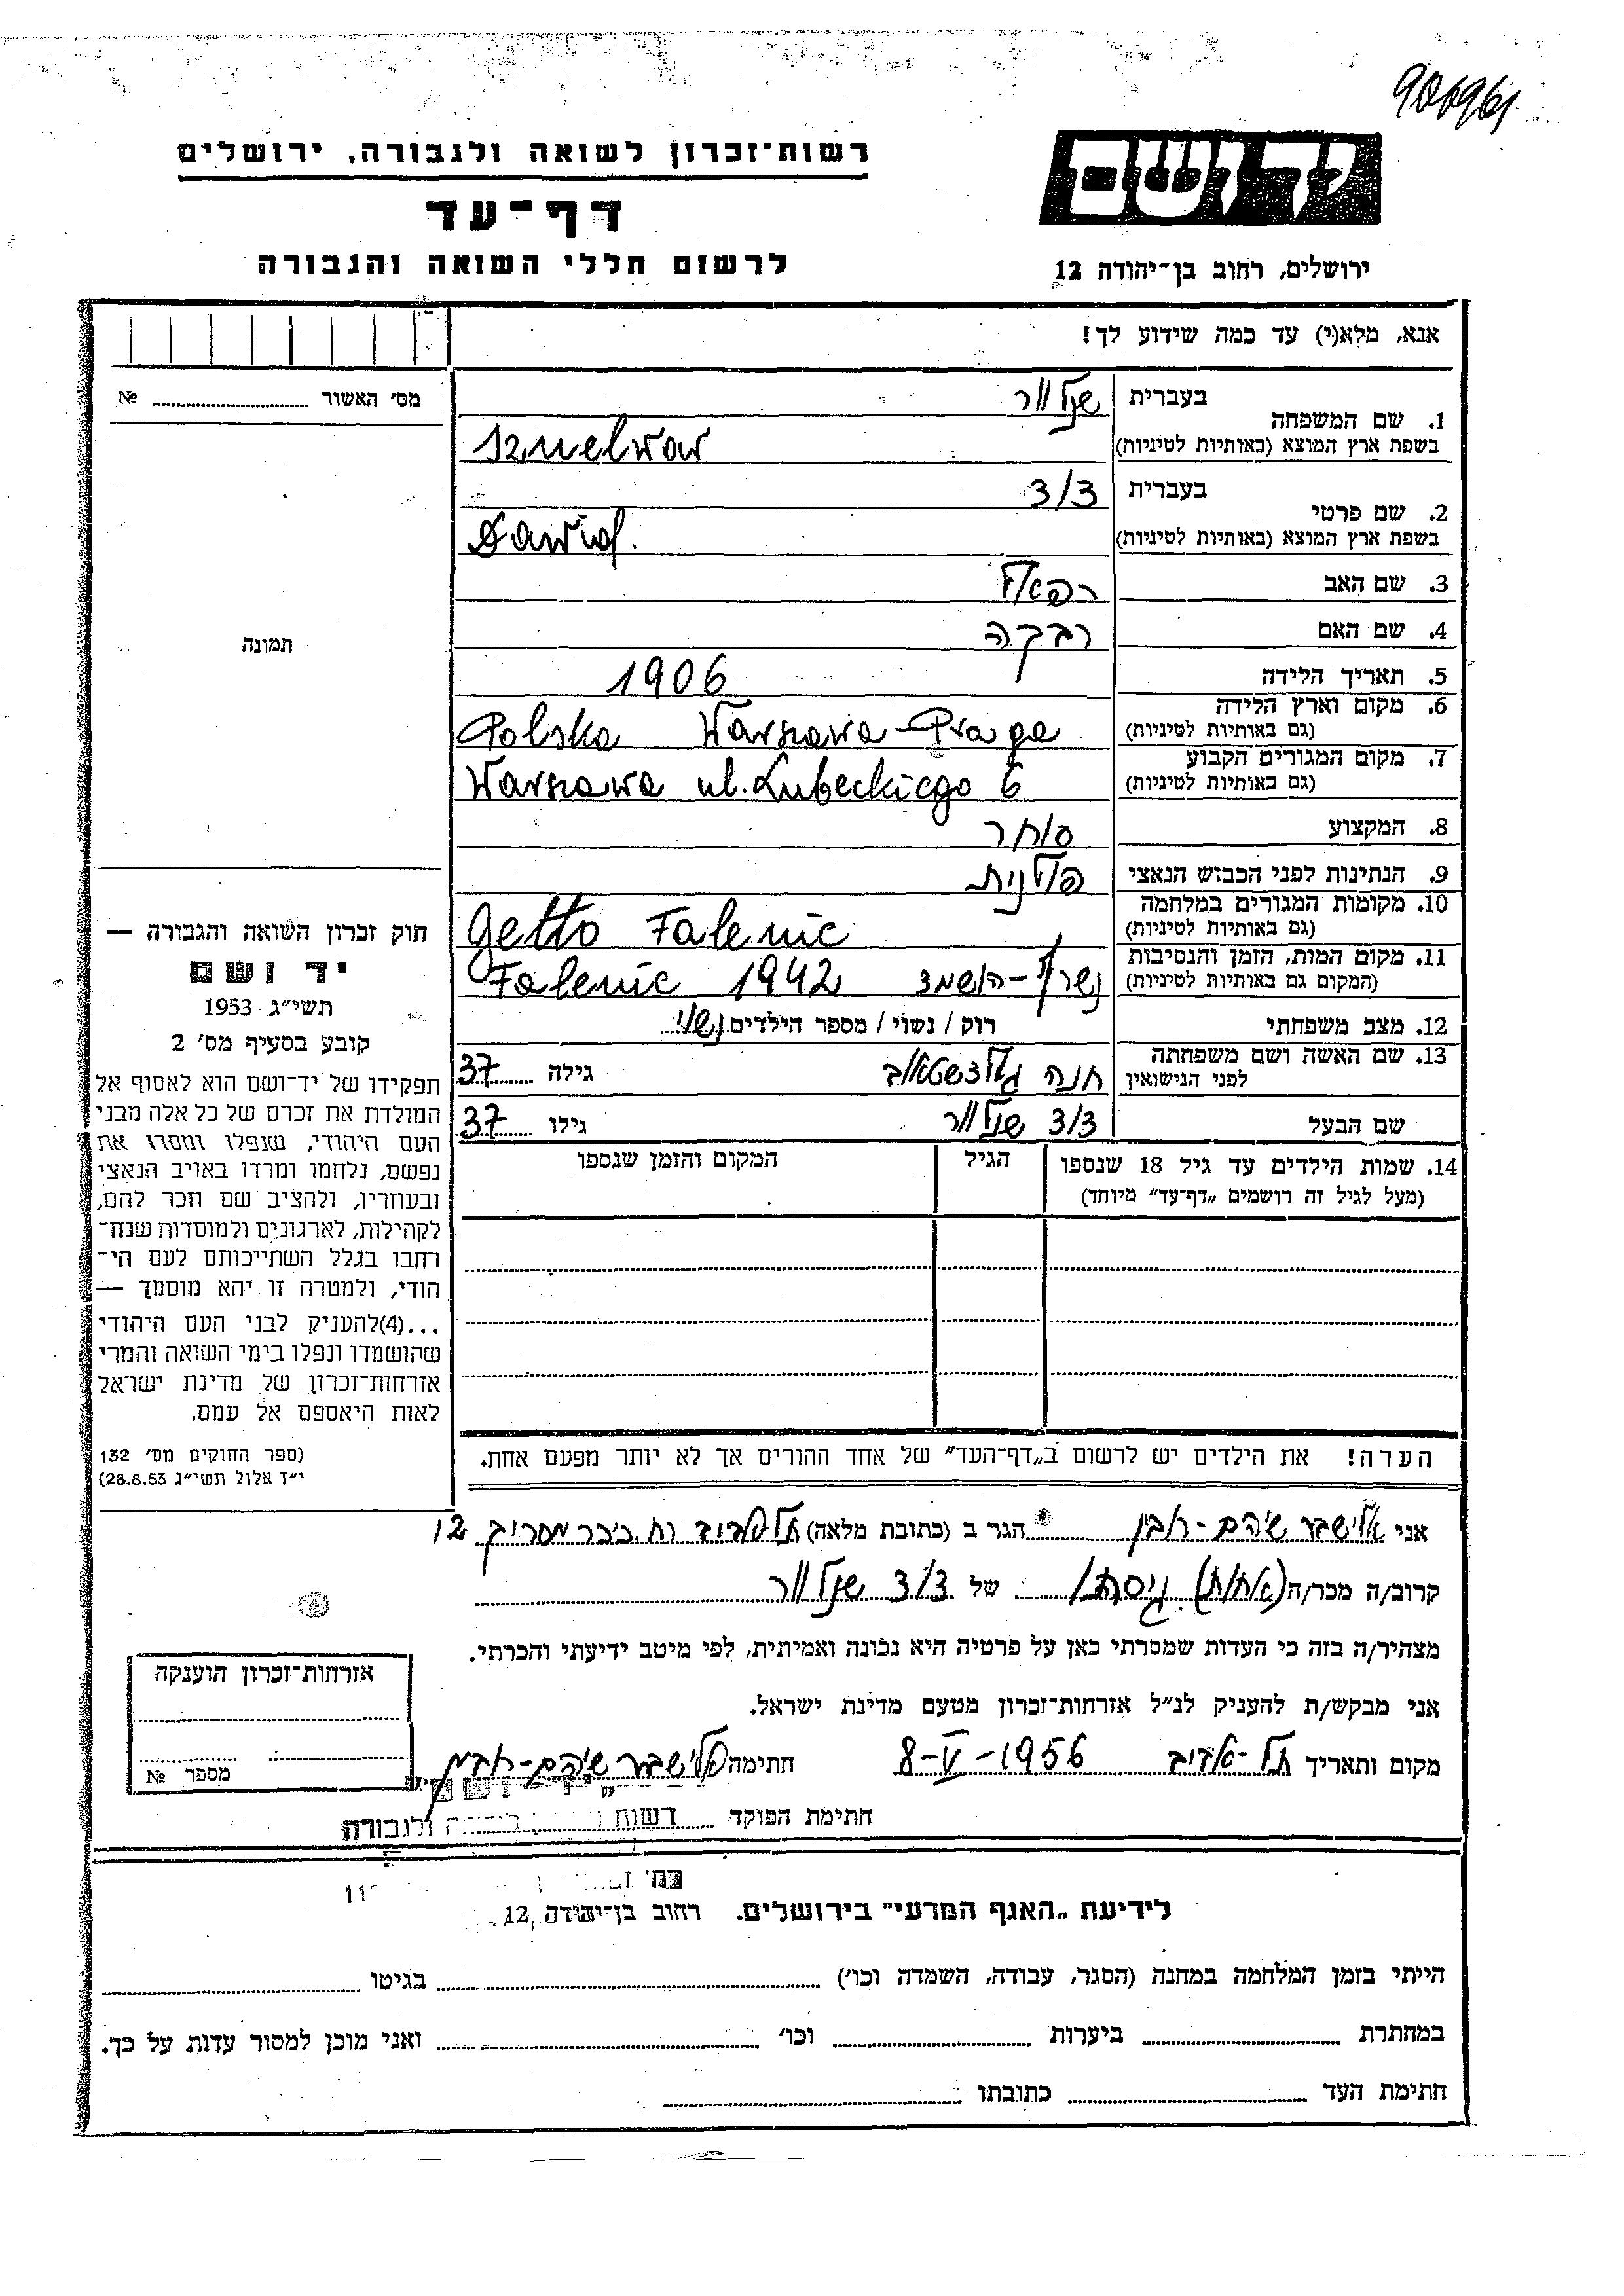 יד ושם
רשות־זכרון לשואה ולגבורה, ירושלים
דף־עד
לרשום חללי השואה והגבורה
ירושלים, רחוב בן־יהודה 12
אנא, מלא(י) עד כמה שידוע לך!
מס׳ האשור № 
1. שם המשפחה
בעברית
בשפת ארץ המוצא (באותיות לטיניות)
2. שם פרטי
בעברית דוד
בשפת ארץ המוצא (באותיות לטיניות) Dawid
3. שם האב רפאל
4. שם האם רבקה
5. תאריך הלידה 1906
6. מקום וארץ הלידה (גם באותיות לטיניות) Polska Warszawa-Praga
7. מקום המגורים הקבוע (גם באותיות לטיניות) Warszawa ul. Lubeckiego 6
8. המקצוע סוחר
9. הנתינות לפני הכבוש הנאצי פולנית
10. מקומות המגורים במלחמה (גם באותיות לטיניות) Getto Falenic
11. מקום המות, הזמן והנסיבות (המקום גם באותיות לטיניות) Falenic 1942 נשרף-הושמד
12. מצב משפחתי רוק / נשוי / מספר הילדים נשוי
13. שם האשה ושם משפחתה לפני הנישואין חנה גילה 37
שם הבעל דוד גילו 37
14. שמות הילדים עד גיל 18 שנספו הגיל המקום והזמן שנספו
(מעל לגיל זה רושמים „דף־עד״ מיוחד)
הערה! את הילדים יש לרשום ב„דף־העד״ של אחד ההורים אך לא יותר מפעם אחת.
תמונה
חוק זכרון השואה והגבורה —
יד ושם
תשי״ג 1953
קובע בסעיף מס׳ 2
תפקידו של יד־ושם הוא לאסוף אל
המולדת את זכרם של כל אלה מבני
העם היהודי, שנפלו ומסרו את
נפשם, נלחמו ומרדו באויב הנאצי
ובעוזריו, ולהציב שם וזכר להם,
לקהילות, לארגונים ולמוסדות שנח־
רחבו בגלל השתייכותם לעם הי־
הודי, ולמטרה זו יהא מוסמך —
...(4)להעניק לבני העם היהודי
שהושמדו ונפלו בימי השואה והמרי
אזרחות־זכרון של מדינת ישראל
לאות היאספם אל עמם.
(ספר החוקים מס׳ 132
י״ז אלול תשי״ג 28.8.53)
אני אלישבע הגר ב (כתובת מלאה) תל אביב 12
קרוב/ה מכר/ה (אחות) גיסתו של דוד
מצהיר/ה בזה כי העדות שמסרתי כאן על פרטיה היא נכונה ואמיתית, לפי מיטב ידיעתי והכרתי.
אני מבקש/ת להעניק לנ״ל אזרחות־זכרון מטעם מדינת ישראל.
מקום ותאריך תל-אביב 8-V-1956 חתימה אלישבע
חתימת הפוקד רשות ולגבורה
אזרחות־זכרון הוענקה
מספר №
לידיעת „האגף המדעי״ בירושלים, רחוב בן־יהודה 12,
הייתי בזמן המלחמה במחנה (הסגר, עבודה, השמדה וכו׳) בגיטו
במחתרת ביערות וכו׳ ואני מוכן למסור עדות על כך.
חתימת העד כתובתו